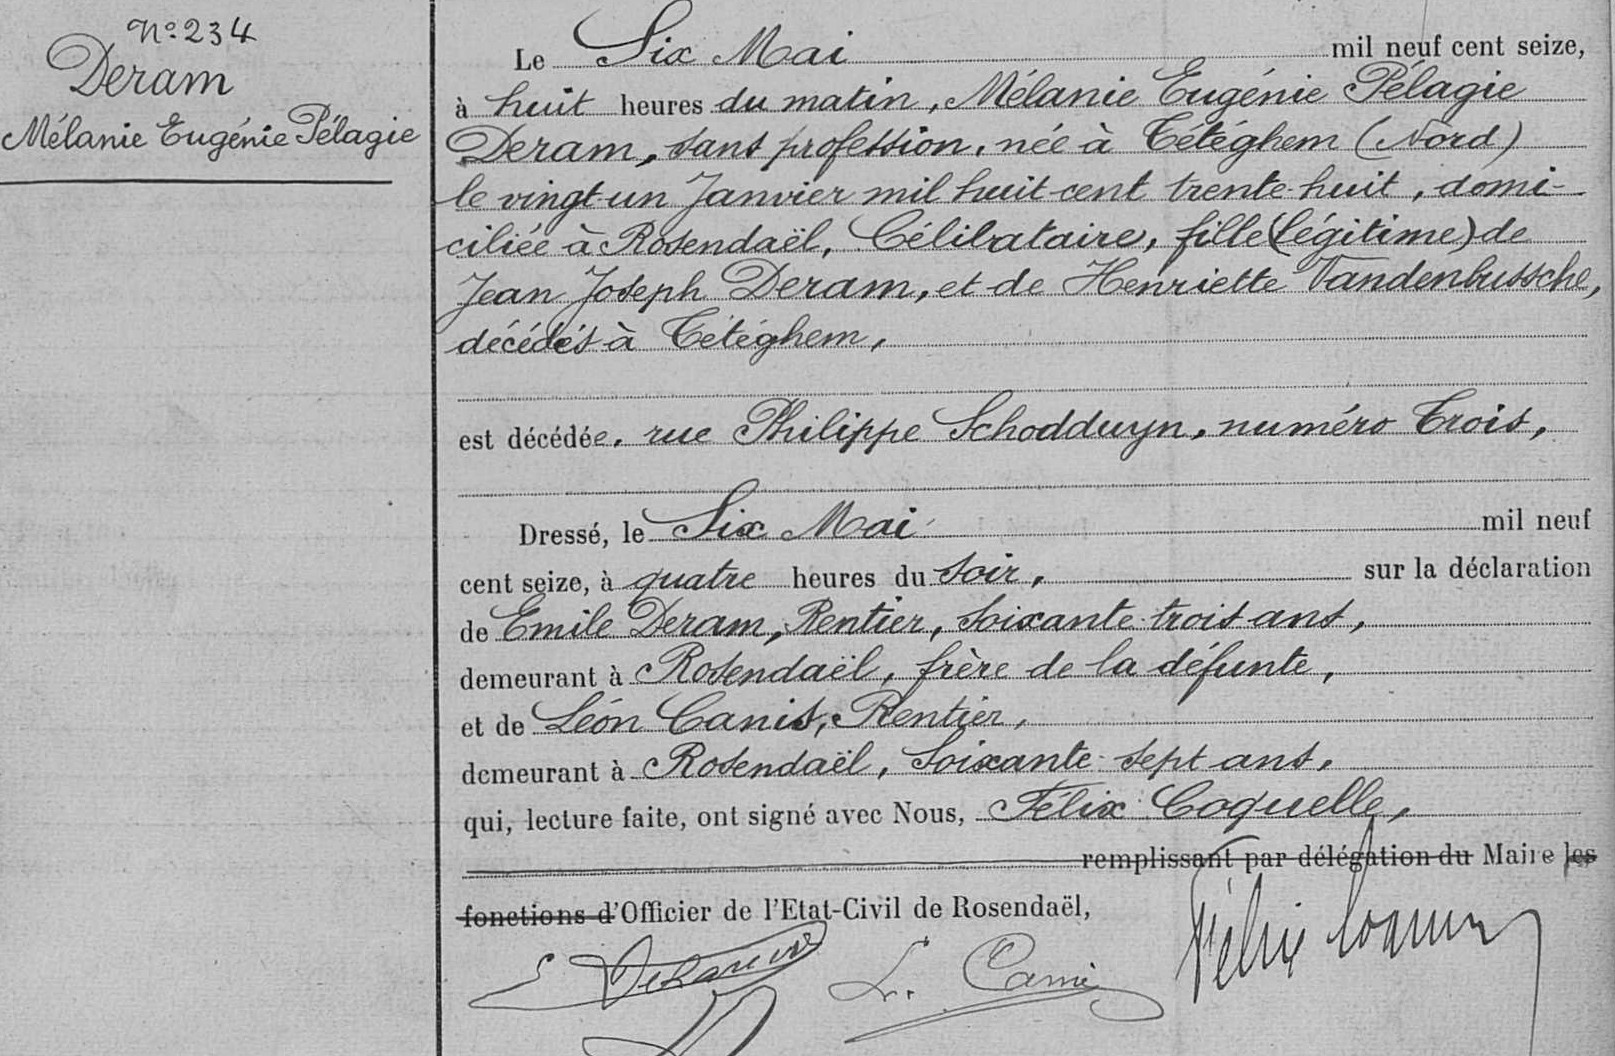 N° 234
Deram
Mélanie Eugénie Pélagie
Le Six Mai mil neuf cent seize,
à huit heures du matin, Mélanie Eugénie Pélagie
Deram, sans profession, née à Tétéghem (Nord)
le vingt-un Janvier mil huit cent trente-huit, domi-
ciliée à Rosendaël, Célibataire, fille (légitime) de
Jean Joseph Deram, et de Henriette Vandenbussche,
décédés à Tétéghem,
est décédée, rue Philippe Schodduyn, numéro Trois,
Dressé, le Six Mai mil neuf
cent seize, à quatre heures du soir, sur la déclaration
de Emile Deram, Rentier, soixante-trois ans,
demeurant à Rosendaël, frère de la défunte,
et de Léon Canis, Rentier,
demeurant à Rosendaël, soixante-sept ans,
qui, lecture faite, ont signé avec Nous, Félix Coquelle,
remplissant par délégation du Maire les
fonctions d'Officier de l'Etat-Civil de Rosendaël,
L. Canis
Félix Coquelle